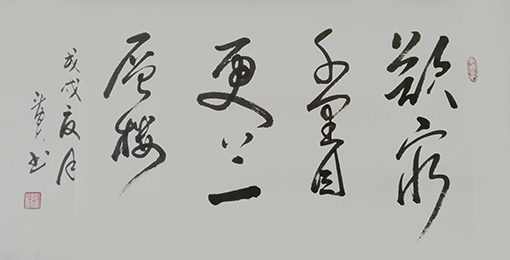 欲穷
千里目
更上一
層樓
戊戌夏月
书